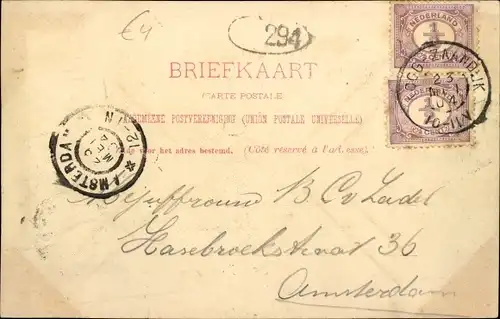 €4
294
NEDERLAND
BRIEFKAART
CARTE POSTALE
ALGEMEENE POSTVEREENIGING (UNION POSTALE UNIVERSELLE)
voor het adres bestemd. (Côté réservé à l'adresse.)
AMSTERDA
12-1N
Mejuffrouw B. C. v. Zadel
Hasebroekstraat 36
Amsterdam